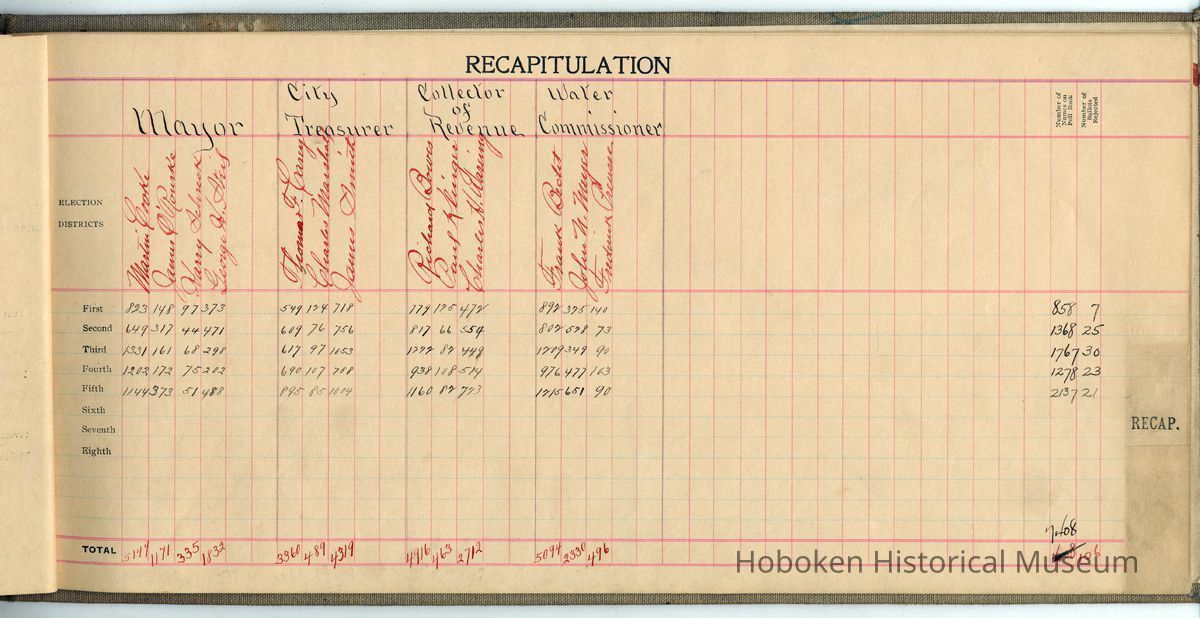 RECAPITULATION
Mayor
City Treasurer
Collector of Revenue
Water Commissioner
Number of Names on Poll Book
Number of Ballots Rejected
ELECTION DISTRICTS
Martin Cooke
James O'Rourke
Harry
George H. Steil
Thomas F. Carey
Charles Marshall
James Smith
Richard Bowes
Paul
Charles H.
Frank
John W. Meyer
Frederick
First 823 148 97 373 549 124 718 779 125 472 892 325 140 858 7
Second 649 317 44 471 609 76 756 817 66 554 802 528 73 1368 25
Third 1331 161 68 298 617 97 1053 1222 82 449 1209 349 90 1767 30
Fourth 1202 172 75 202 690 107 788 938 108 514 976 477 103 1278 23
Fifth 1144 373 51 488 895 85 1004 1160 82 723 1215 651 90 2137 21
Sixth
Seventh
Eighth
RECAP.
7408
TOTAL 5149 1171 335 1832 3360 489 4319 4916 463 2712 5094 2330 496 106
Hoboken Historical Museum